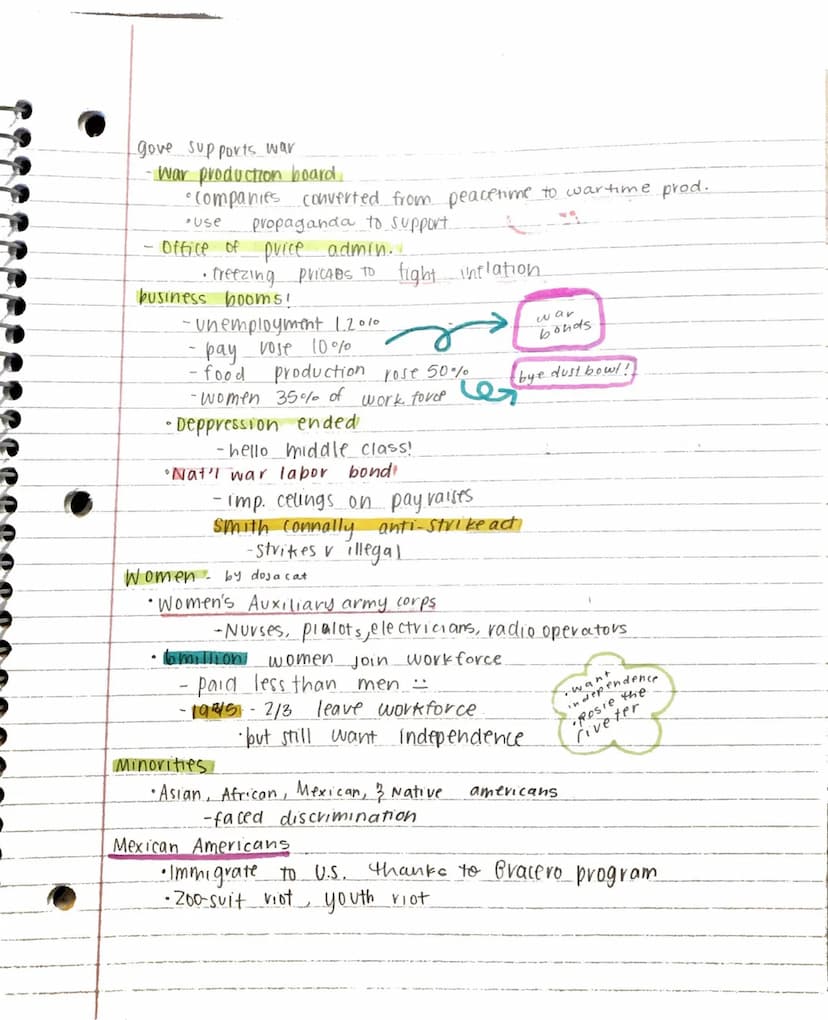 gove supports war
- War production board
• companies converted from peacetime to wartime prod.
• use propaganda to support
- Office of price admin.
• freezing prices to fight inflation
business booms!
- unemployment 1.2%
war bonds
- pay rose 10%
- food production rose 50%
bye dust bowl!
- women 35% of work force
• Deppression ended
- hello middle class!
• Nat'l war labor bond
- imp. celings on payraises
Smith Connally anti-strike act
- strikes r illegal
Women - by doja cat
• Women's Auxiliary army corps
- Nurses, pialots, electricians, radio operators
• 6 million women join workforce
- paid less than men :(
- 1945 - 2/3 leave workforce
• but still want independence
• want
independence
• Rosie the
riveter
Minorities
• Asian, African, Mexican, & Native americans
- faced discrimination
Mexican Americans
• Immigrate to U.S. thanks to Bracero program
• Zoo-suit riot, youth riot